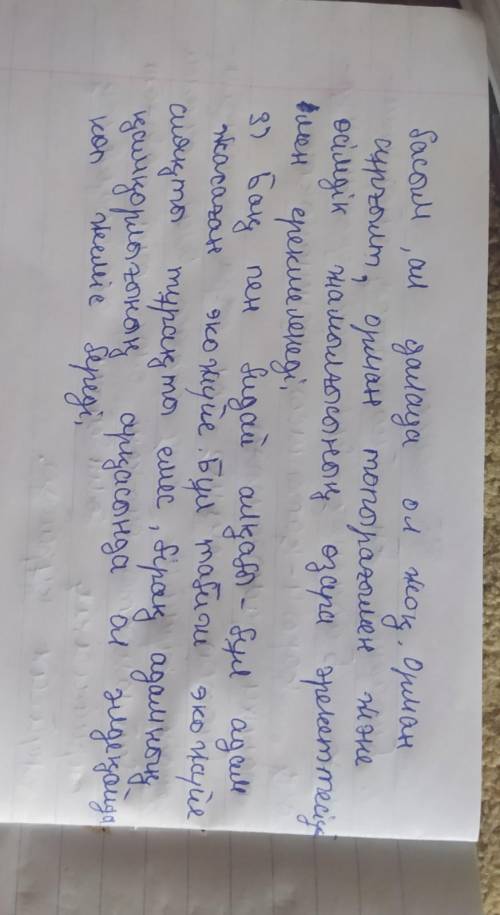 басым, ал далада ол жоқ. Орман
құрғғыт, орман топырағымен және
өсімдік жамылғысының өзара әрекеттесуі
мен ерекшеленеді.
3) Бақ пен бидай алқабы - бұл адам
жасаған экожүйе. Бұл табиғи экожүйе
сияқты тұрақты емес, бірақ адамның
қамқорлығының арқасында ол әлдеқайда
көп жеміс береді.